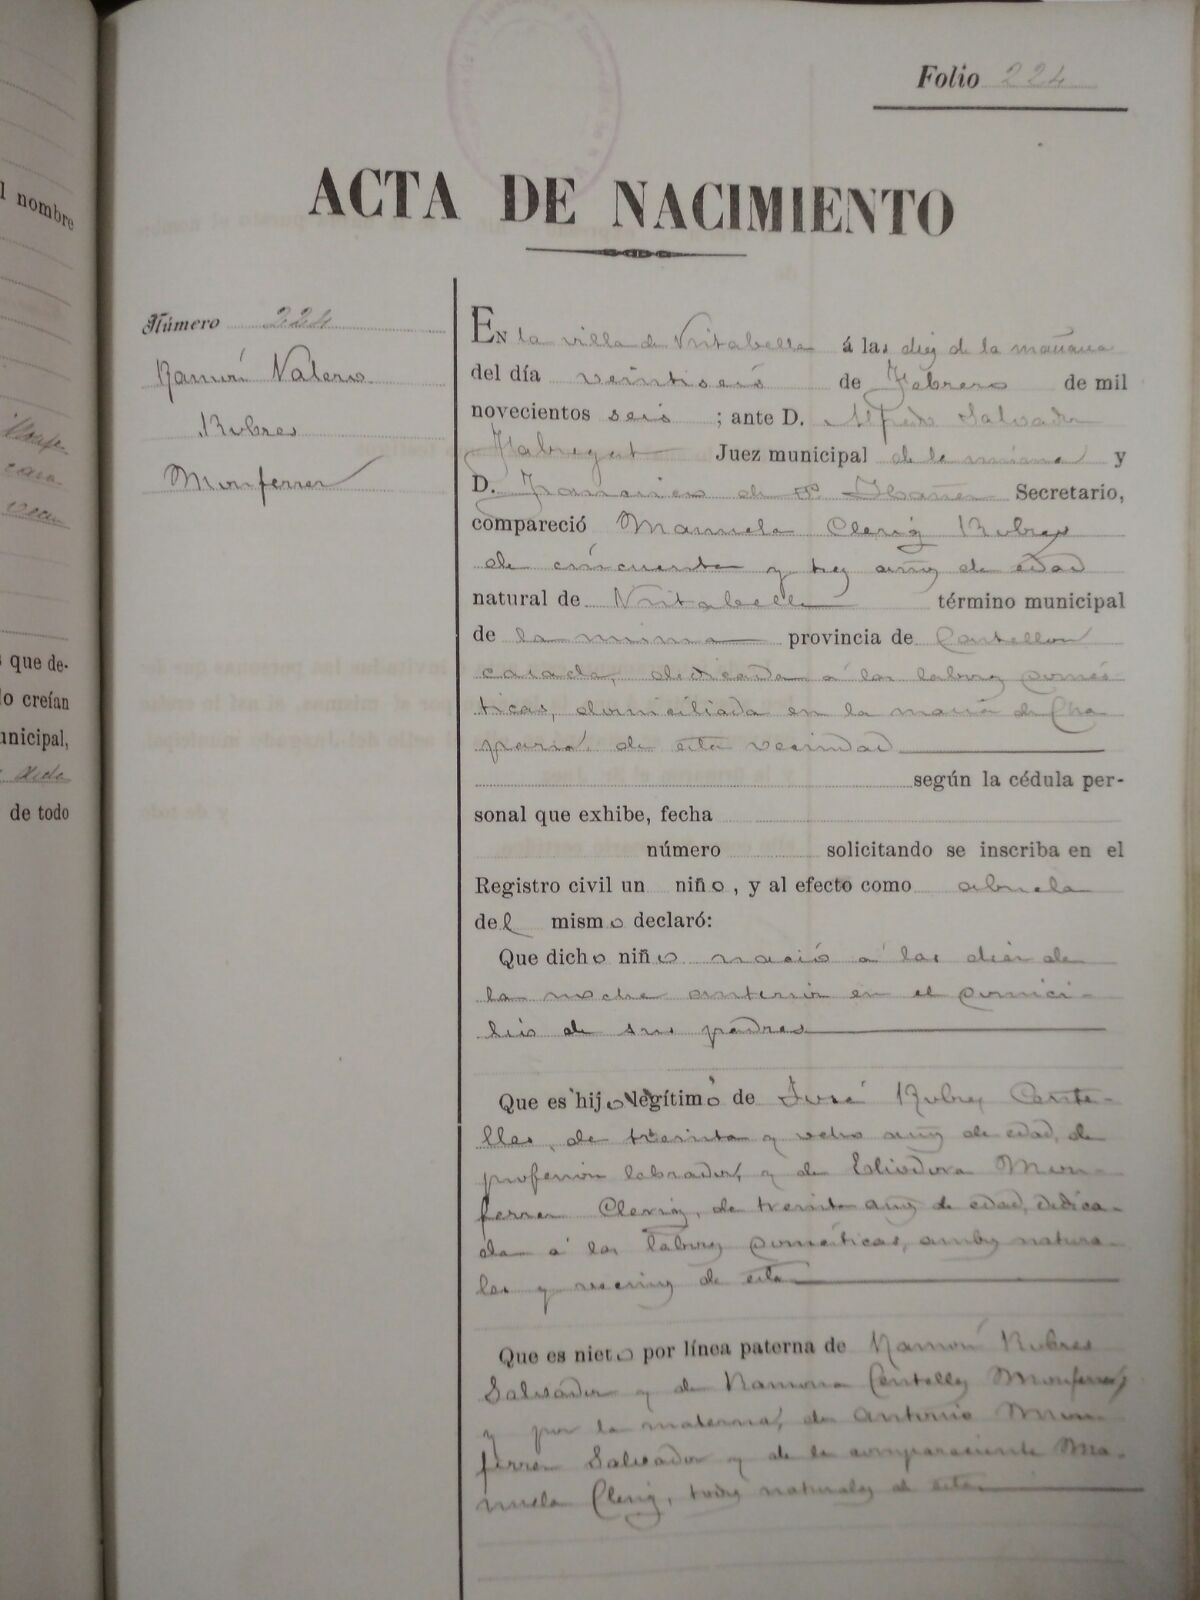 Folio 224
ACTA DE NACIMIENTO
Número 224
Ramón Valero
Robres
Monferrer
l nombre
s que de-
lo creían
unicipal,
de todo
EN la villa de Vistabella á las diez de la mañana
del día veintiseis de Febrero de mil
novecientos seis ; ante D. Alfredo Salvador
Fabregat Juez municipal de la misma y
D. Francisco de Ibañez Secretario,
compareció Manuela Clerig Robres
de cincuenta y tres años de edad
natural de Vistabella término municipal
de la misma provincia de Castellon
casada, dedicada á las labores domés
ticas, domiciliada en la masia de Cha
paria, de esta vecindad
según la cédula per-
sonal que exhibe, fecha
número solicitando se inscriba en el
Registro civil un niño, y al efecto como abuela
del mismo declaró:
Que dicho niño nació á las diez de
la noche anterior en el domici-
lio de sus padres
Que es hijo legítimo de José Robres Cente-
lles, de treinta y ocho años de edad, de
profesión labrador, y de Eliodora Mon-
ferrer Clerig, de treinta años de edad, dedica-
da á las labores domésticas, ambos natura-
les y vecinos de esta
Que es nieto por línea paterna de Ramón Robres
Salvador y de Ramona Centelles Monferrer,
y por la materna, de Antonio Mon
ferrer Salvador y de la compareciente Ma-
nuela Clerig, todos naturales de esta